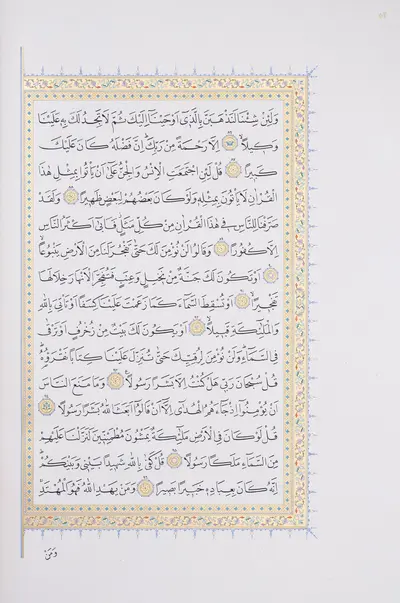 وَلَئِنْ شِئْنَا لَنَذْهَبَنَّ بِالَّذٖٓي اَوْحَيْنَٓا اِلَيْكَ ثُمَّ لَا تَجِدُ لَكَ بِهٖ عَلَيْنَا
وَكٖيلًا ﴿٨٦﴾ اِلَّا رَحْمَةً مِنْ رَبِّكَ اِنَّ فَضْلَهُ كَانَ عَلَيْكَ
كَبٖيرًا ﴿٨٧﴾ قُلْ لَئِنِ اجْتَمَعَتِ الْاِنْسُ وَالْجِنُّ عَلٰٓى اَنْ يَأْتُوا بِمِثْلِ هٰذَا
الْقُرْاٰنِ لَا يَأْتُونَ بِمِثْلِهٖ وَلَوْ كَانَ بَعْضُهُمْ لِبَعْضٍ ظَهٖيرًا ﴿٨٨﴾ وَلَقَدْ
صَرَّفْنَا لِلنَّاسِ فٖي هٰذَا الْقُرْاٰنِ مِنْ كُلِّ مَثَلٍ فَاَبٰٓى اَكْثَرُ النَّاسِ
اِلَّا كُفُورًا ﴿٨٩﴾ وَقَالُوا لَنْ نُؤْمِنَ لَكَ حَتّٰى تَفْجُرَ لَنَا مِنَ الْاَرْضِ يَنْبُوعًا
﴿٩٠﴾ اَوْ تَكُونَ لَكَ جَنَّةٌ مِنْ نَخٖيلٍ وَعِنَبٍ فَتُفَجِّرَ الْاَنْهَارَ خِلَالَهَا
تَفْجٖيرًا ﴿٩١﴾ اَوْ تُسْقِطَ السَّمَٓاءَ كَمَا زَعَمْتَ عَلَيْنَا كِسَفًا اَوْ تَأْتِيَ بِاللّٰهِ
وَالْمَلٰٓئِكَةِ قَبٖيلًا ﴿٩٢﴾ اَوْ يَكُونَ لَكَ بَيْتٌ مِنْ زُخْرُفٍ اَوْ تَرْقٰى
فِي السَّمَٓاءِ وَلَنْ نُؤْمِنَ لِرُقِيِّكَ حَتّٰى تُنَزِّلَ عَلَيْنَا كِتَابًا نَقْرَؤُهُ
قُلْ سُبْحَانَ رَبّٖي هَلْ كُنْتُ اِلَّا بَشَرًا رَسُولًا ﴿٩٣﴾ وَمَا مَنَعَ النَّاسَ
اَنْ يُؤْمِنُٓوا اِذْ جَٓاءَهُمُ الْهُدٰٓى اِلَّٓا اَنْ قَالُٓوا اَبَعَثَ اللّٰهُ بَشَرًا رَسُولًا ﴿٩٤﴾
قُلْ لَوْ كَانَ فِي الْاَرْضِ مَلٰٓئِكَةٌ يَمْشُونَ مُطْمَئِنّٖينَ لَنَزَّلْنَا عَلَيْهِمْ
مِنَ السَّمَٓاءِ مَلَكًا رَسُولًا ﴿٩٥﴾ قُلْ كَفٰى بِاللّٰهِ شَهٖيدًا بَيْنٖي وَبَيْنَكُمْ
اِنَّهُ كَانَ بِعِبَادِهٖ خَبٖيرًا بَصٖيرًا ﴿٩٦﴾ وَمَنْ يَهْدِ اللّٰهُ فَهُوَ الْمُهْتَدِ
وَمَنْ